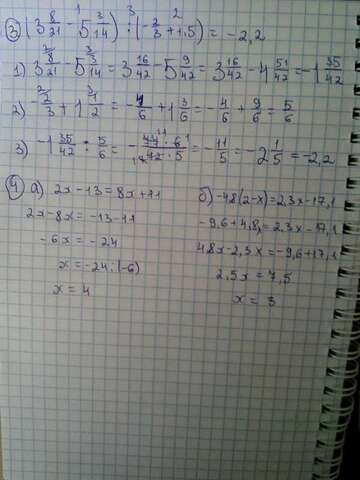 ③ (3 8/21 - 5 3/14) : (-2/3 + 1,5) = -2,2
1) 3 8/21 - 5 3/14 = 3 16/42 - 5 9/42 = 3 16/42 - 4 51/42 = -1 35/42
2) -2/3 + 1 1/2 = -4/6 + 1 3/6 = -4/6 + 9/6 = 5/6
3) -1 35/42 : 5/6 = -77·6/42·5 = -11/5 = -2 1/5 = -2,2
④ а) 2x-13=8x+11
2x-8x=-13-11
-6x=-24
x=-24:(-6)
x=4
б) -4,8(2-x)=2,3x-17,1
-9,6+4,8x=2,3x-17,1
4,8x-2,3x=-9,6+17,1
2,5x=7,5
x=3